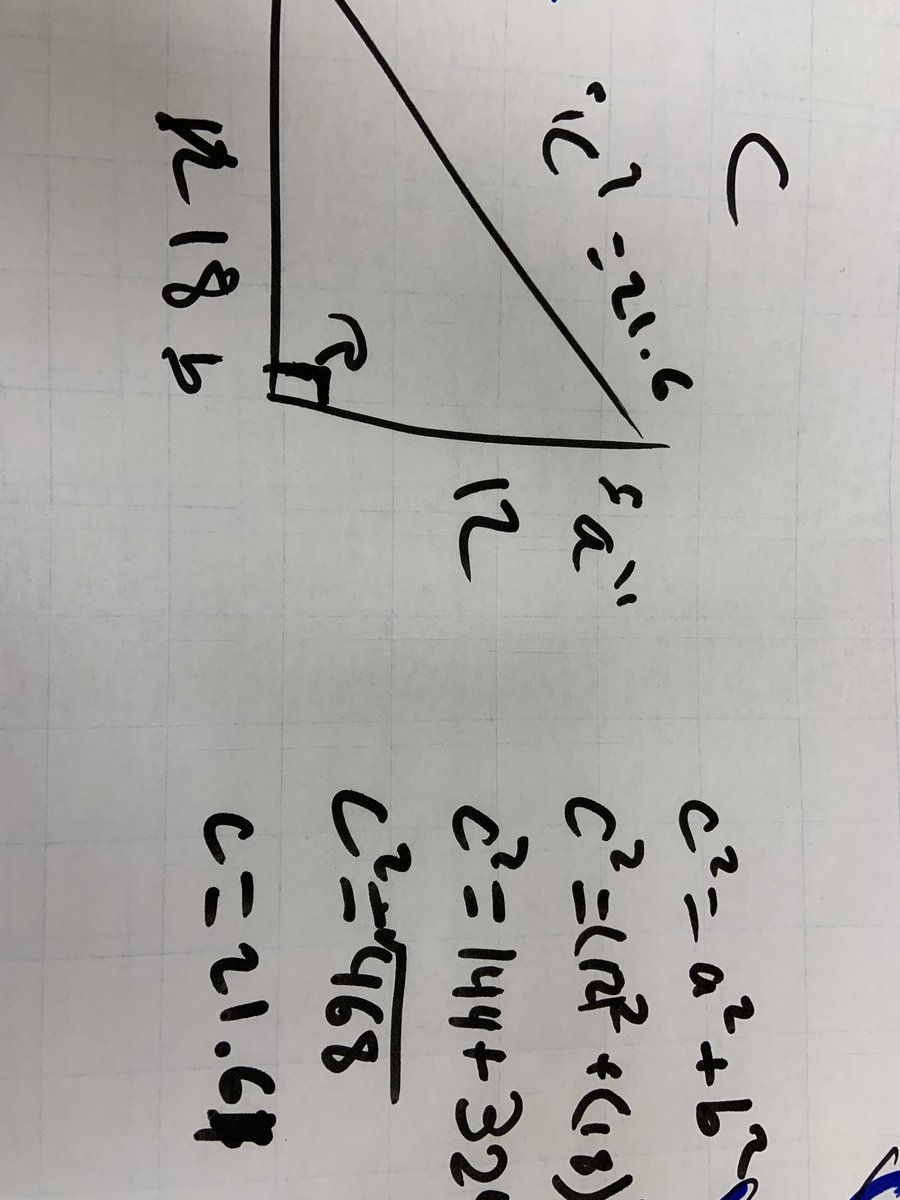 C
"c" = 21.6
"a"
12
18 b
c² = a² + b²
c² = (12)² + (18)
c² = 144 + 32
c² = √468
c = 21.6